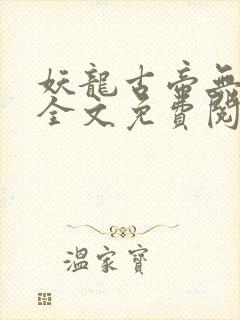 妖龍古帝無
全文免費閱
溫家寶